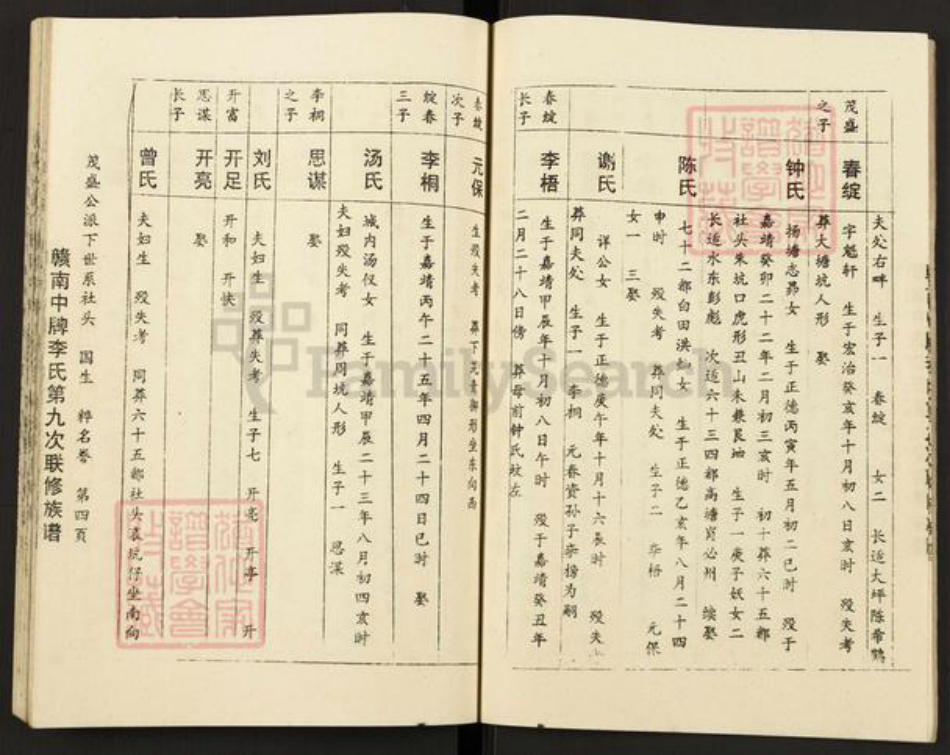 夫处右畔 生子一 春绽 女二 长适大坪陈希鹤
茂盛之子 春绽 字魁轩 生于宏治癸亥年十月初八日亥时 殁失考
葬大塘坑人形 娶
钟氏 扬塘志昂女 生于正德丙寅年五月初二巳时 殁于
嘉靖癸卯二十二年二月初三亥时 初十葬六十五都
社头朱坑口虎形丑山未兼艮坤 生子一庚子妖女二
长适水东彭彪 次适六十三四都高塘肖必州 续娶
陈氏 七十二都白田洪女 生于正德乙亥年八月二十四
申时 殁失考 葬同夫处 生子二 李梧 元保
女一 三娶
谢氏 详公女 生于正德庚午年十月十六辰时 殁失
葬同夫处 生子一 李桐 元春资孙子荣榜为嗣
春绽长子 李梧 生于嘉靖甲辰年十月初八日午时 殁于嘉靖癸丑年
二月二十八日傍 葬母前钟氏坟左
春绽次子 元保 生殁失考 葬下形坐东向西
绽春三子 李桐 生于嘉靖丙午二十五年四月二十四日巳时 娶
汤氏 城内汤仪女 生于嘉靖甲辰二十三年八月初四亥时
夫妇殁失考 同葬周坑人形 生子一 思谋
李桐之子 思谋 娶
刘氏 夫妇生 殁葬失考 生子七 开亮 开亭 开
开富 开足 开和 开快
思谋长子 开亮 娶
曾氏 夫妇生 殁失考 同葬六十五都社头袁坑仔坐南向
茂盛公派下世系社头 国生 粹名誊 第四页
赣南中牌李氏第九次联修族谱
FamilySearch